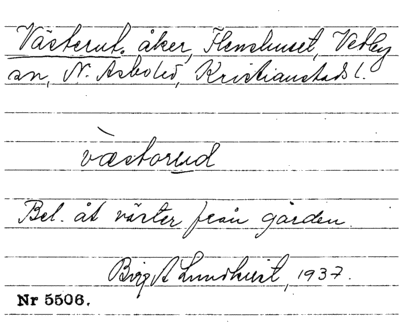 Västerut. åker, Flenshuset, Vedby
sn, N. Åsbo hd, Kristianstads l.
væstorud
Bel. åt väster från gården.
Birgit Lundkvist, 1937.
Nr 5506.